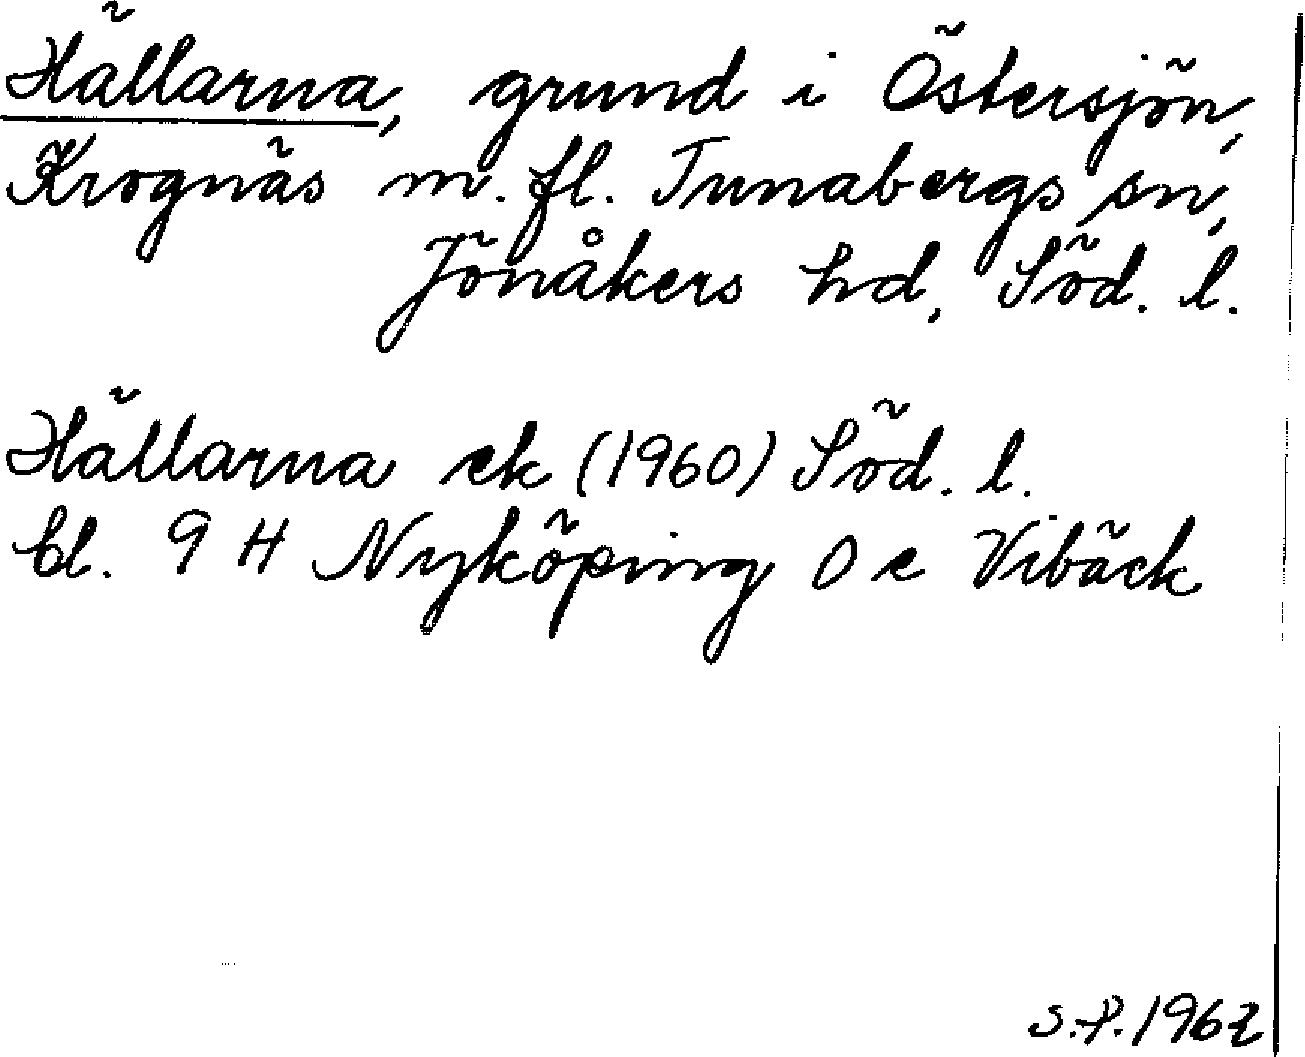 Hällarna, grund i Östersjön,
Krognäs m. fl. Tunabergs sn,
Jönåkers hd, Söd. l.
Hällarna ek (1960) Söd. l.
bl. 9 H Nyköping 0 e Vibäck
S.P. 1962